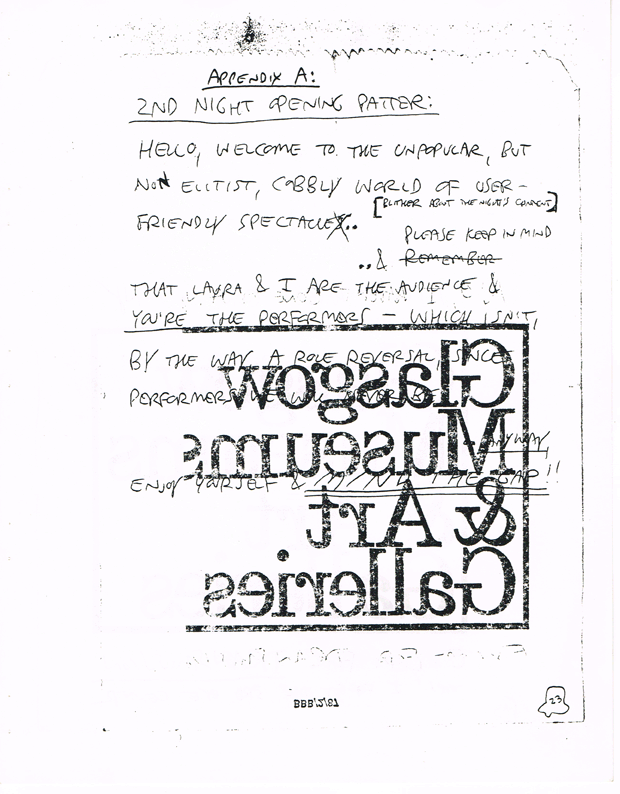 APPENDIX A:
2ND NIGHT OPENING PATTER:
HELLO, WELCOME TO THE UNPOPULAR, BUT
NON ELITIST, COBBLY WORLD OF USER-
[BLITHER ABOUT THE NIGHT'S CONTENT]
FRIENDLY SPECTACLE..
PLEASE KEEP IN MIND
..& REMEMBER
THAT LAURA & I ARE THE AUDIENCE &
YOU'RE THE PERFORMERS – WHICH ISN'T,
BY THE WAY A ROLE REVERSAL, SINCE
PERFORMERS WE WILL NEVER BE
ANYWAY,
ENJOY YOURSELF & MIND THE GAP!!
Glasgow
Museums
& Art
Galleries
BBB\2\81
23